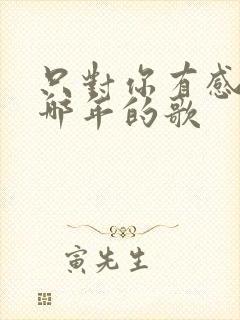 只對你有感
那年的歌
寅先生